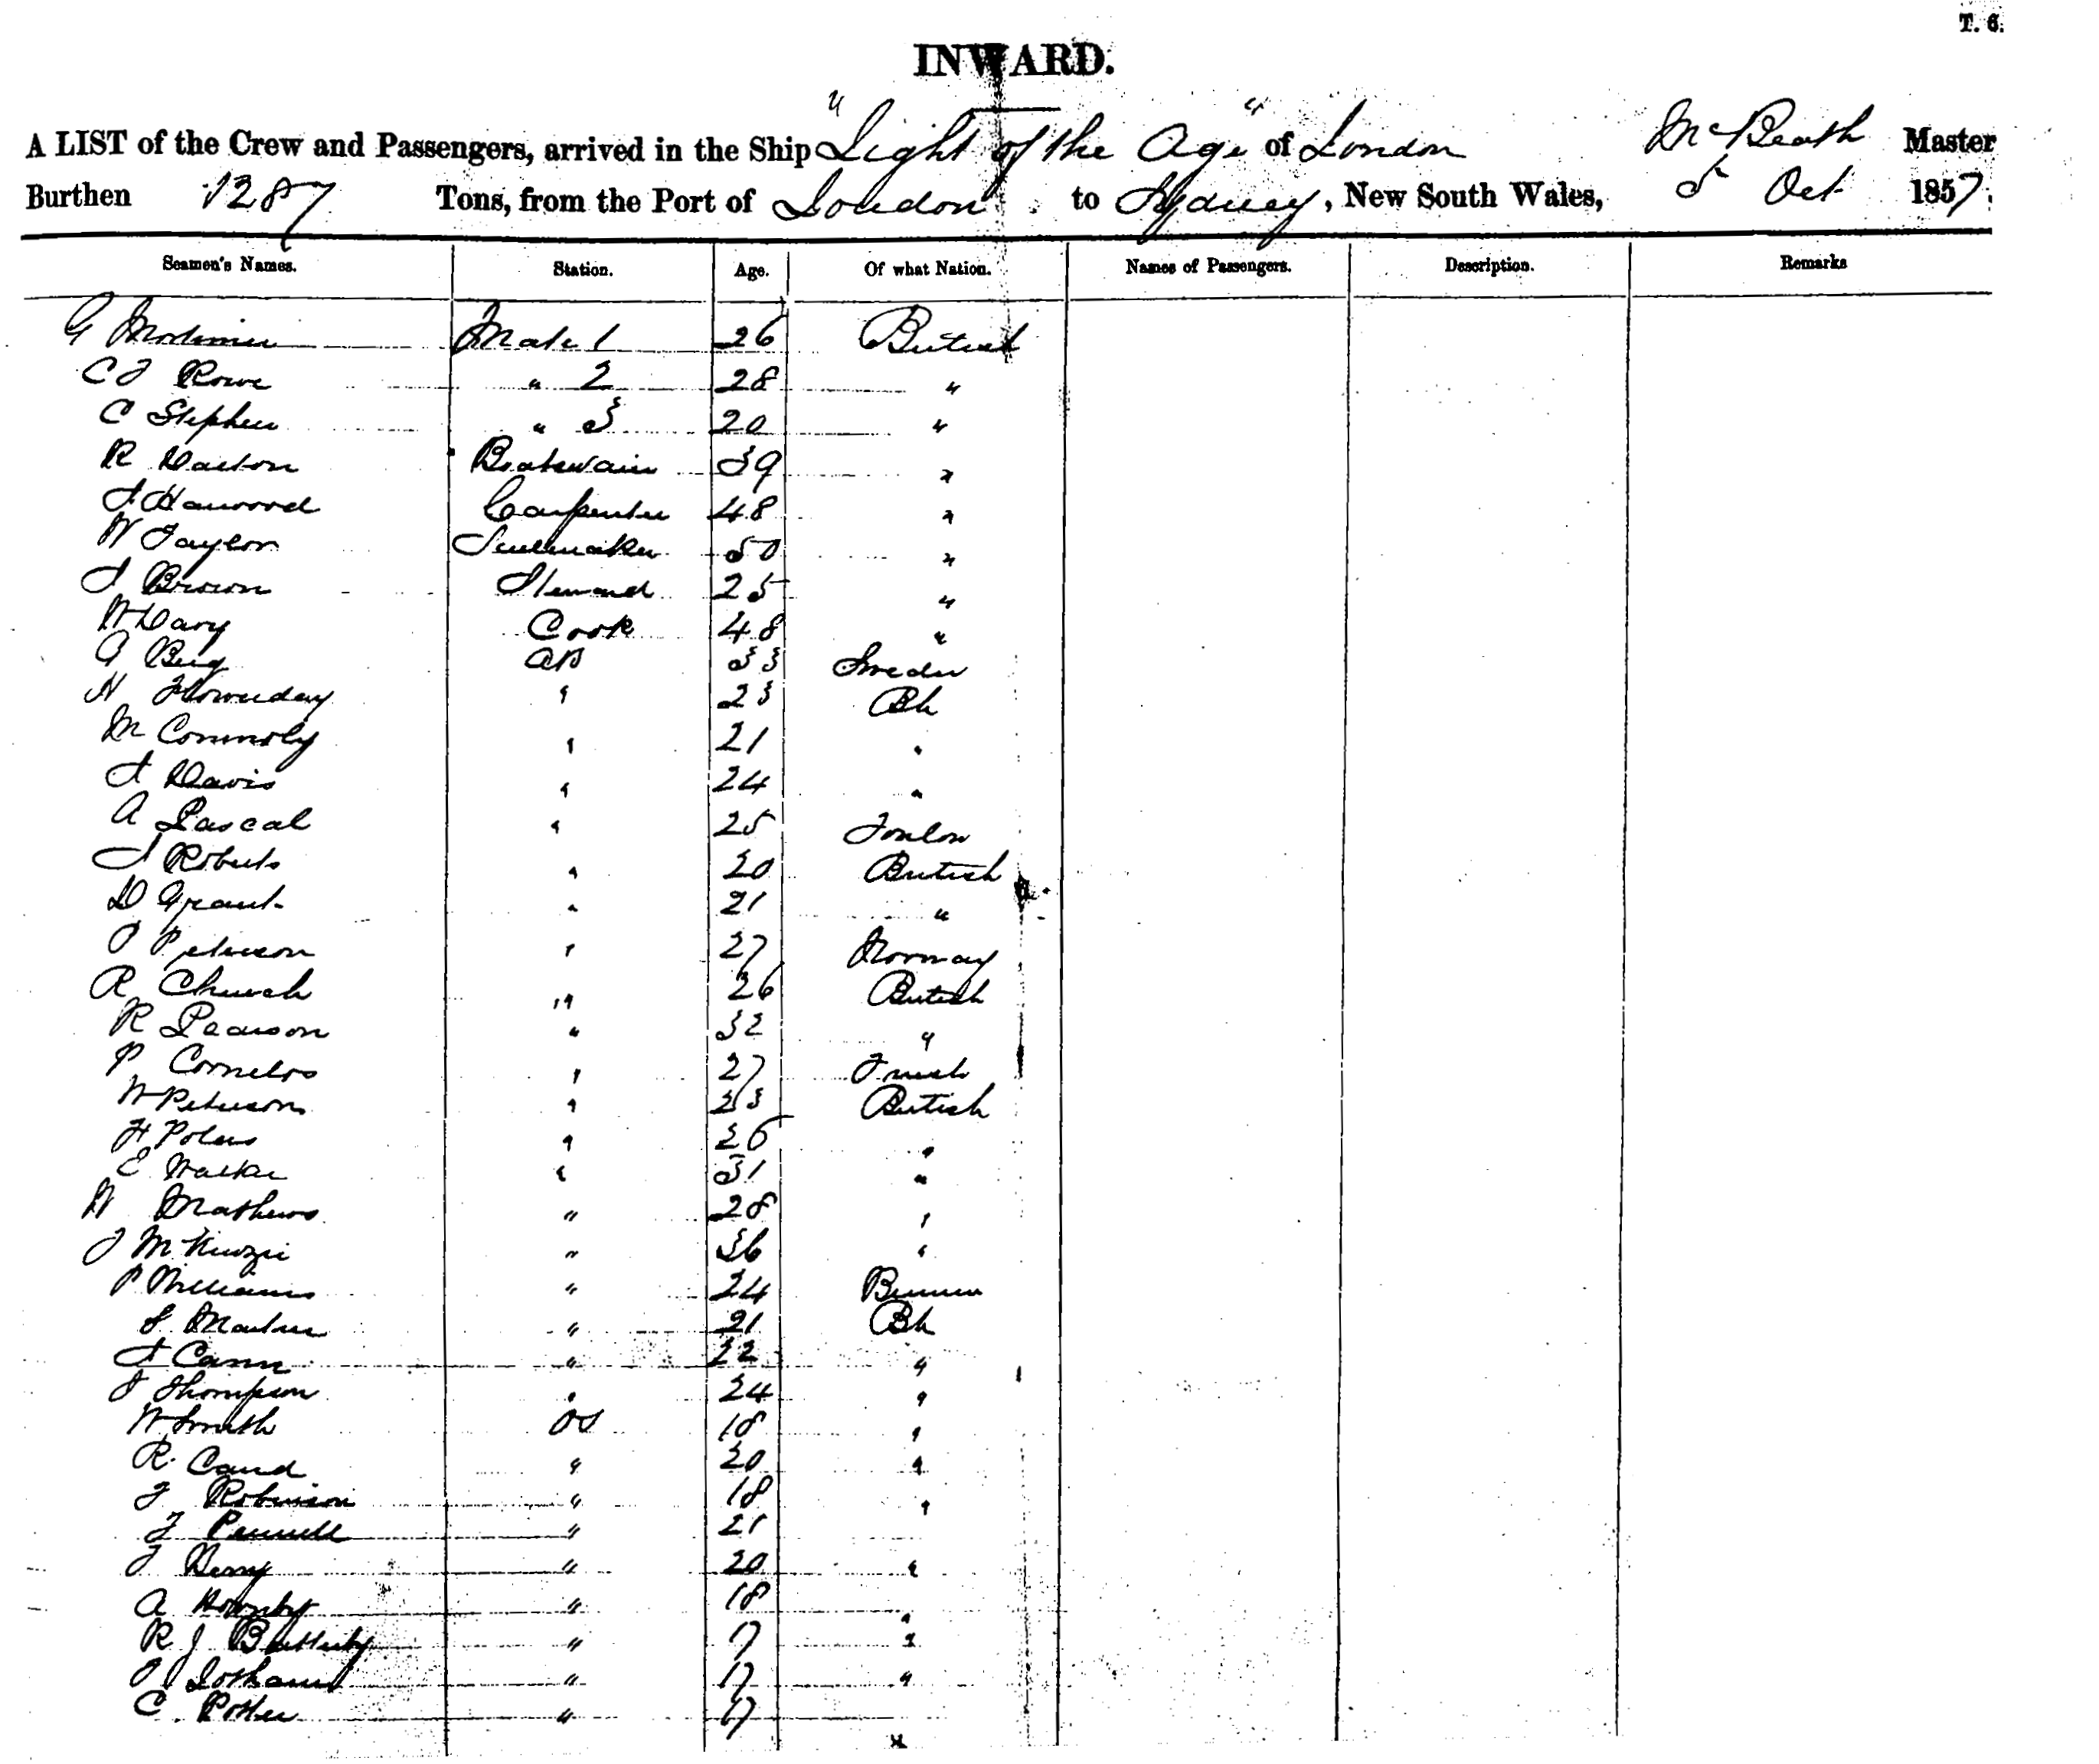 T. 6.
INWARD.
A LIST of the Crew and Passengers, arrived in the Ship "Light of the Age" of London McBeath Master
Burthen 1287 Tons, from the Port of London to Sydney, New South Wales, 5 Oct 1857.
Seamen's Names. Station. Age. Of what Nation. Names of Passengers. Description. Remarks
G Mortimer Mate 1 26 British
C J Rowe " 2 28 "
C Stephen " 3 20 "
R Dalton Boatswain 39 "
J Harwood Carpenter 48 "
W Taylor Sailmaker 50 "
J Brown Steward 25 "
W Davy Cook 48 "
G Berg AB 33 Sweden
H Flowerday " 23 Bh
M Connoly " 21 "
J Davis " 24 "
A Pascal " 25 Toulon
J Roberts " 20 British
D Grant " 21 "
P Peterson " 27 Norway
R Church " 26 British
R Pearson " 32 "
P Cornelos " 27 French
W Peterson " 23 British
H " 26 "
E Walker " 31 "
W Mathews " 28 "
J McKenzie " 36 "
P Williams " 24 Bremen
S Martin " 21 Bh
J Cann " 22 "
J Thompson " 24 "
W Smith OS 18 "
R. Caud " 20 "
J Robinson " 18 "
J Pennell " 21
J Berry " 20 "
A Hornby " 18 "
R J Battersby " 17 "
J " 17 "
C. Potter " 17 "